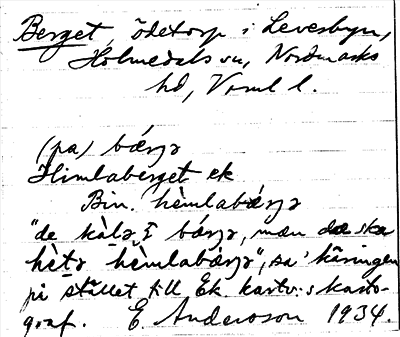 Berget, ödetorp i Levesbyn,
Holmedals sn, Nordmarks
hd, Vrml l.
(pa) bærjə
Himlaberget ek
Bin. hèmlabærjə
"de kàlə i bærjə, mæn dæ ska
hètə hèmlabærjə", sa' käringen
på stället till Ek. kartv:s karto-
graf. E. Andersson 1934.